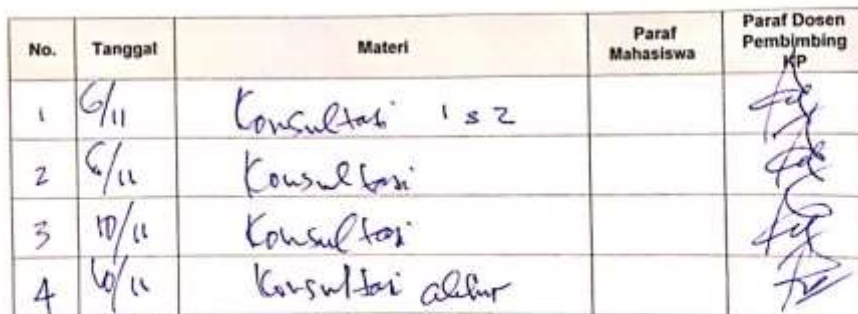 No. Tanggal Materi Paraf Mahasiswa Paraf Dosen Pembimbing KP
1 6/11 Konsultasi 1 s 2
2 6/11 Konsultasi
3 10/11 Konsultasi
4 10/11 Konsultasi akhir